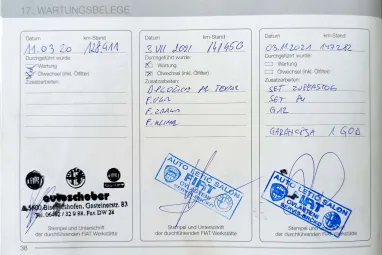 17. WARTUNGSBELEGE
Datum km-Stand
11.03.20 128.411
Durchgeführt wurde:
Wartung
Ölwechsel (inkl. Ölfilter)
Zusatzarbeiten:
autoschober
5500 Bischofshofen, Gasteinerstr. 83
Tel. 06462 / 32 9 88, Fax DW 24
Stempel und Unterschrift
der durchführenden FIAT Werkstätte
Datum km-Stand
3. VII 2021 141450
Durchgeführt wurde:
Wartung
Ölwechsel (inkl. Ölfilter)
Zusatzarbeiten:
F. ULJA
F. ZRAKA
F. KLIME
AUTO LETIĆ SALON
FIAT
OVLAŠTENI
Stempel und Unterschrift
der durchführenden FIAT Werkstätte
Datum km-Stand
03.11.2021 147282
Durchgeführt wurde:
Wartung
Ölwechsel (inkl. Ölfilter)
Zusatzarbeiten:
SET ZUPČASTOG
SET PK
G12
GARANCIJA 1 GOD
AUTO LETIĆ SALON
FIAT
OVLAŠTENI
Stempel und Unterschrift
der durchführenden FIAT Werkstätte
38